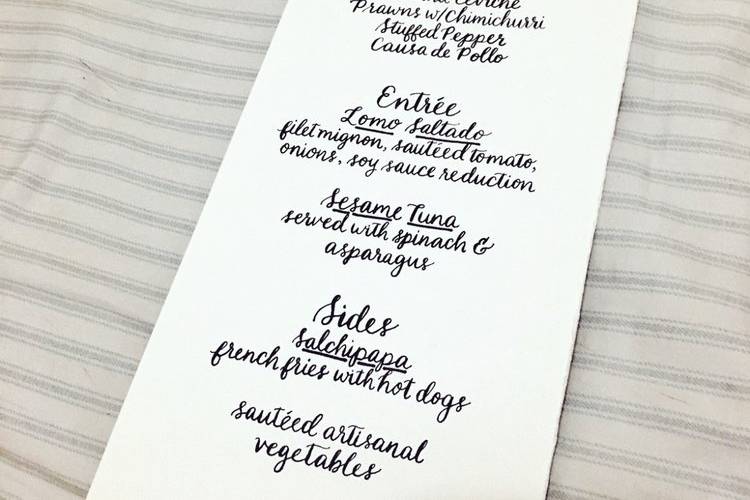 Ceviche
Prawns w/Chimichurri
Stuffed Pepper
Causa de Pollo
Entrée
Lomo Saltado
filet mignon, sautéed tomato,
onions, soy sauce reduction
Sesame Tuna
served with spinach &
asparagus
Sides
Salchipapa
french fries with hot dogs
sautéed artisanal
vegetables